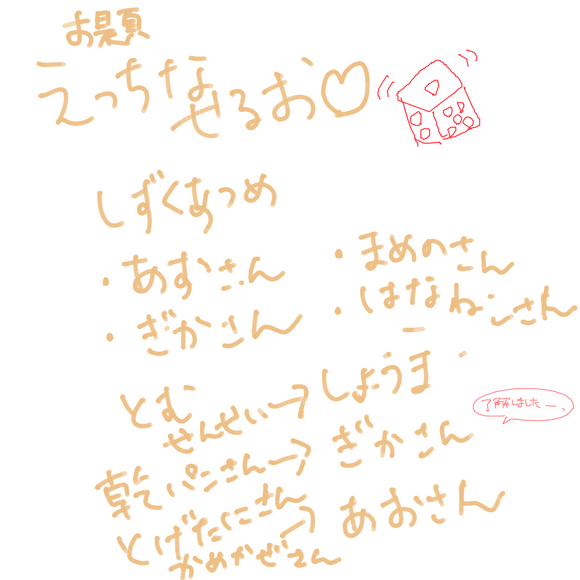 お題
えっちな
せるお♡
しずくあつめ
・あすさん
・ぎかさん
・まめのさん
・はなねこさん
とむ
せんせい→しょうま
乾パンさん→ぎかさん
とげたにさん
かめかぜさん→あおさん
了解しましたー、